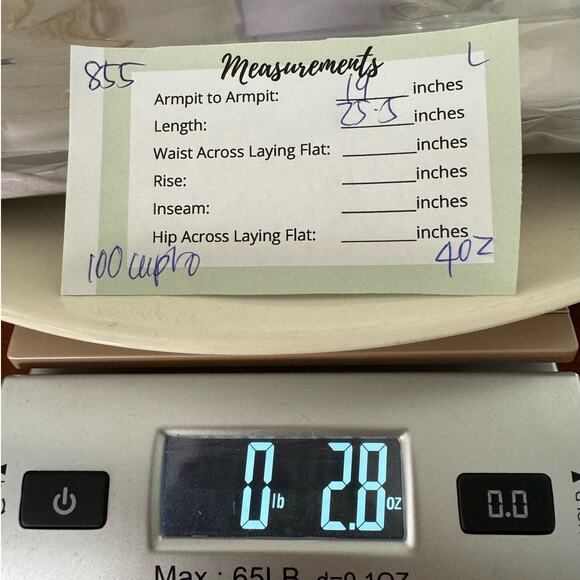 855
Measurements
L
Armpit to Armpit: 19 inches
Length: 25.5 inches
Waist Across Laying Flat: ______ inches
Rise: ______ inches
Inseam: ______ inches
Hip Across Laying Flat: ______ inches
100 cupro
4oz
0 lb 2.8 oz
0.0
Max : 65LB d=0.1OZ